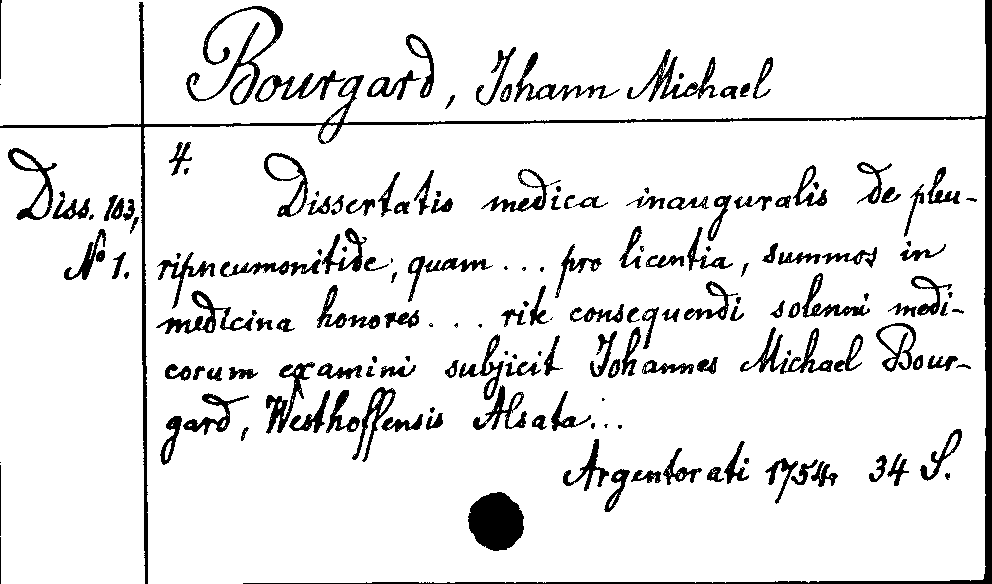 Bourgard, Johann Michael
Diss. 103,
No 1.
4.
Dissertatio medica inauguralis de pleu-
ripneumonitide, quam ... pro licentia, summos in
medicina honores ... rite consequendi solenni medi-
corum examini subjicit Johannes Michael Bour-
gard, Westhoffensis Alsata ...
Argentorati 1754. 34 S.